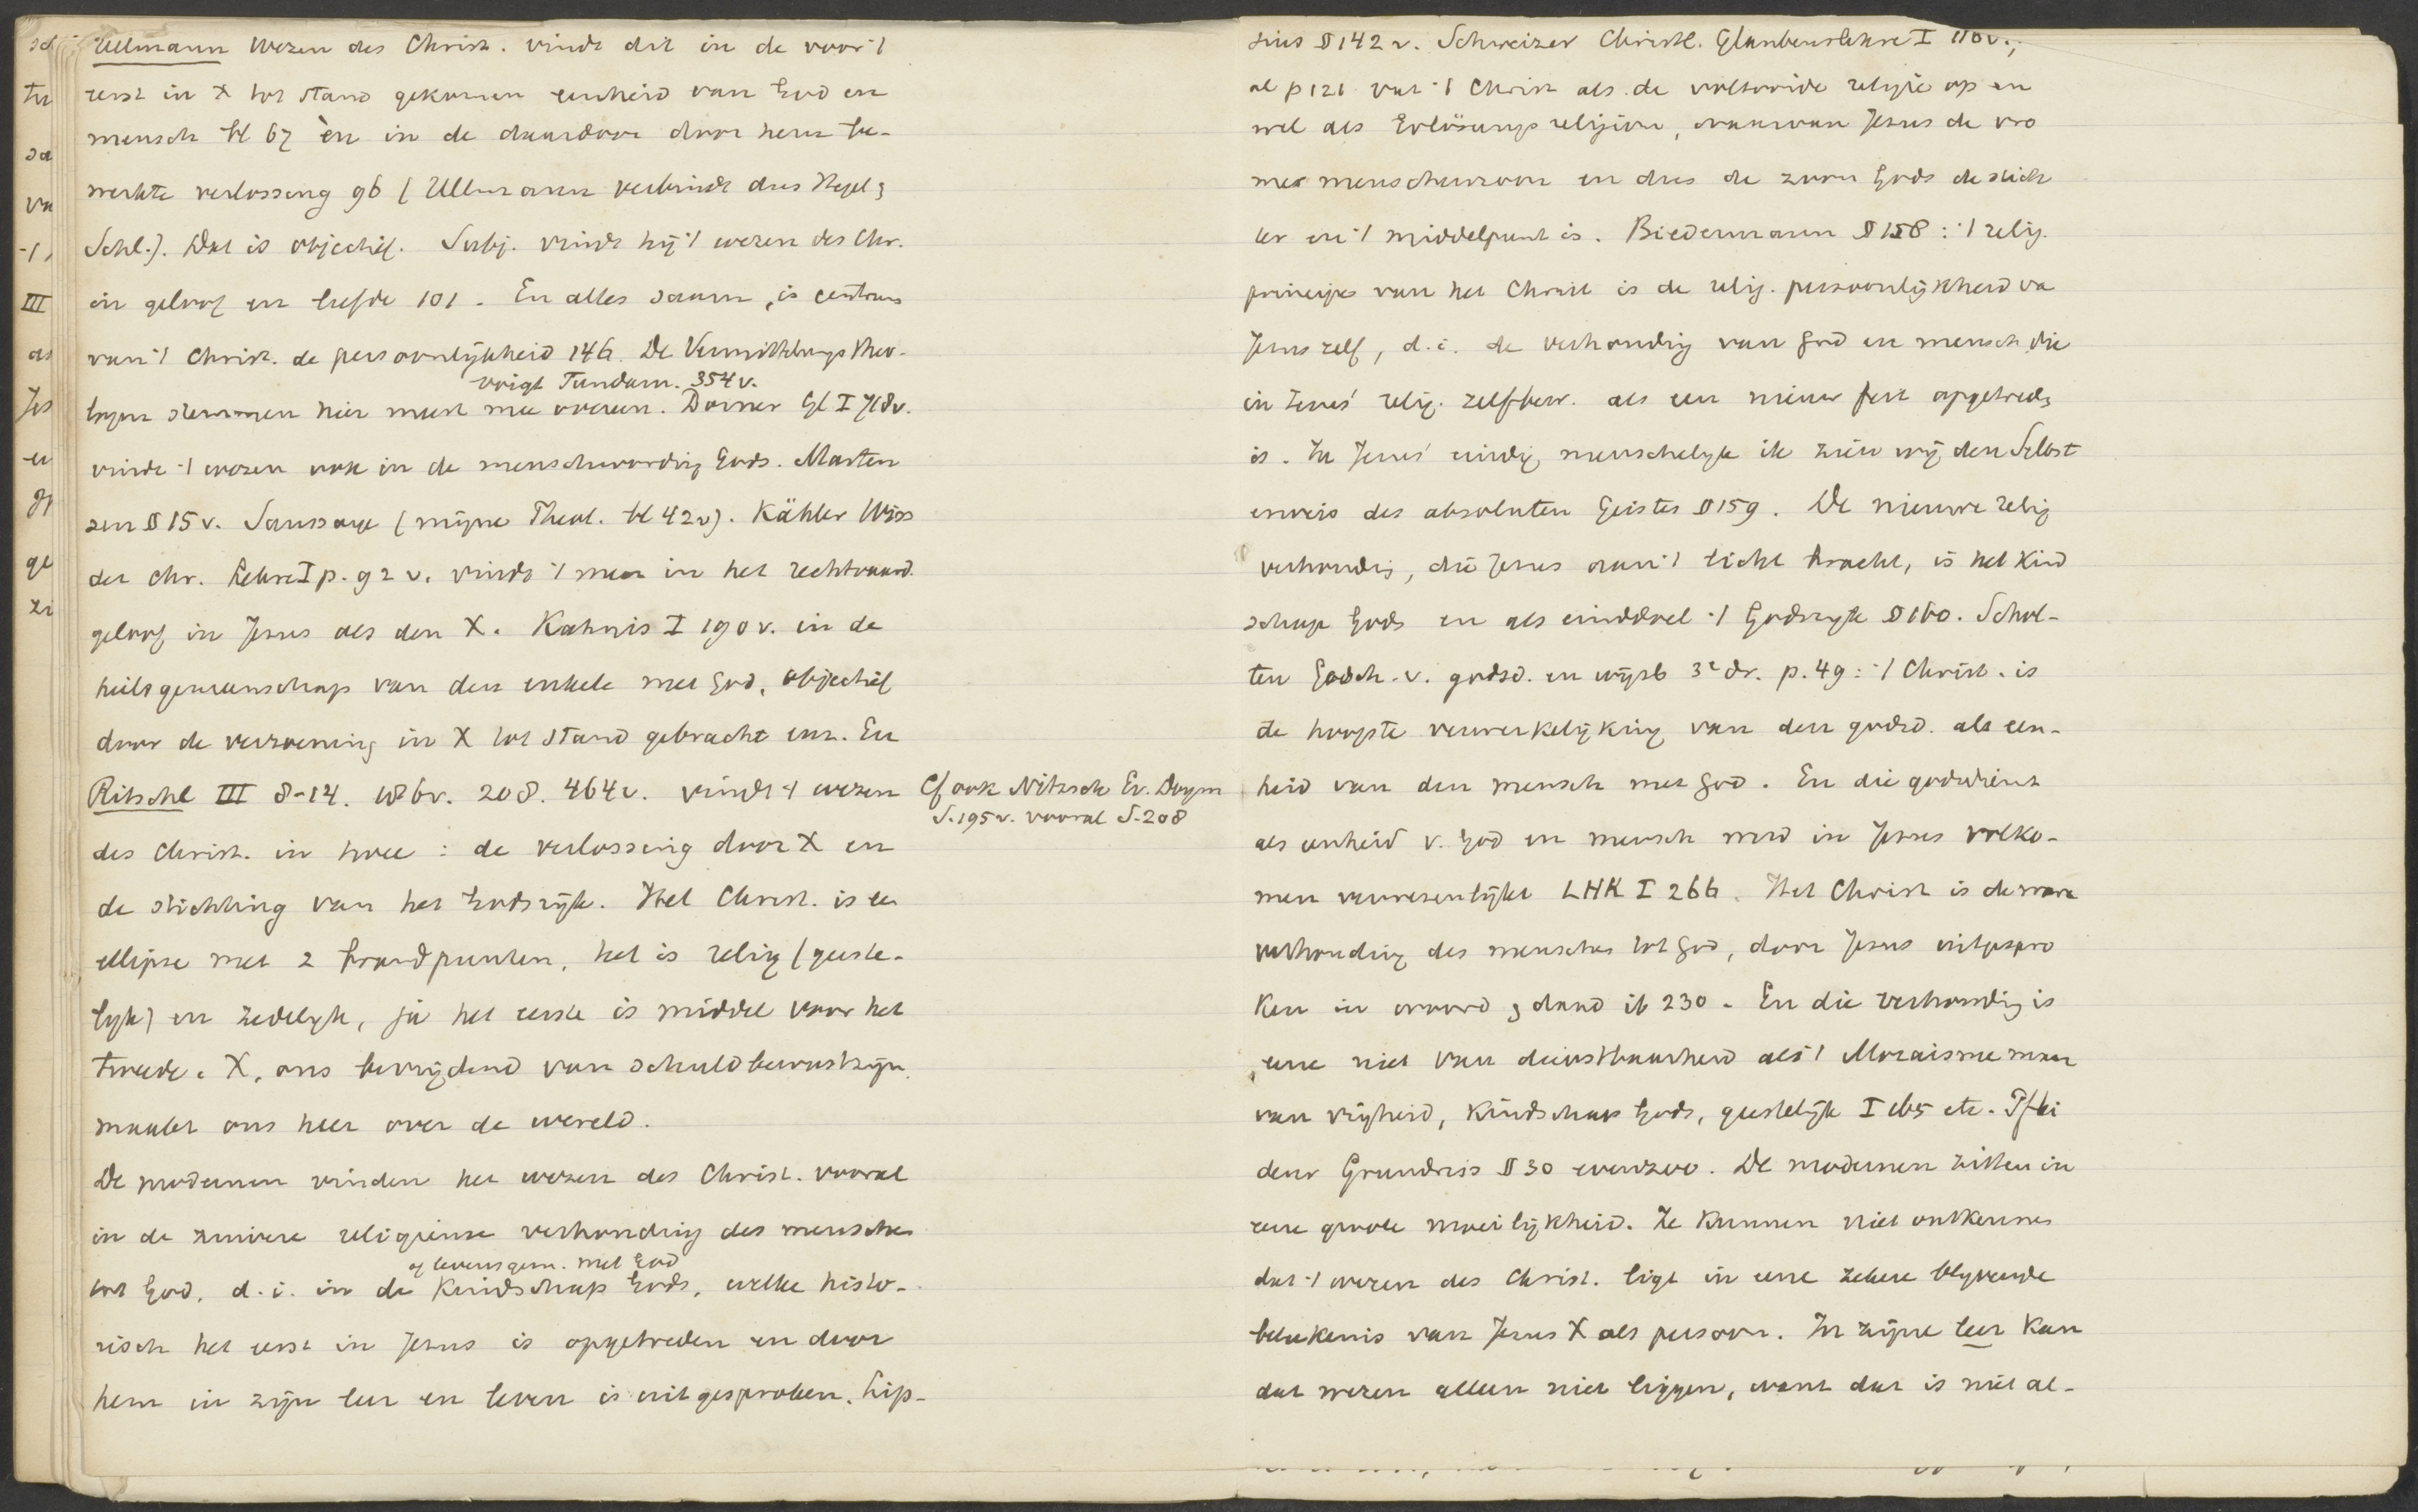 Ullmann Wezen des Christ. vindt dit in de voor 't
eerst in X tot stand gekomen eenheid van God en
mensch bl 67 èn in de daardoor door hem be-
werkte verlossing 96 (Ullmann verbindt dus Hegel &
Schl.). Dat is objectief. Subj. vindt hij 't wezen des Chr.
in geloof en liefde 101. En alles saam, is centrum
van 't Christ. de persoonlijkheid 146. De Vermittelungs theo-
Voigt Fundam. 354 v.
logen stemmen hier meest mee overeen. Dorner Gl I 718v.
vindt 't wezen ook in de menschwording Gods. Marten
sen § 15 v. Saussaye (mijne Theol. bl 42v). Kähler Wiss
der chr. Lehre I p. 92 v. vindt 't meer in het rechtvaard.
geloof in Jezus als den X. Kahnis I 190 v. in de
heilsgemeenschap van den enkele met God, objectief
door de verzoening in X tot stand gebracht enz. En
Ritschl III 8-14. 186v. 208. 464v. vindt 't wezen
Cf ook Nitzsch Ev. Dogm
S. 195v. vooral S. 208
des Christ. in twee : de verlossing door X en
de stichting van het Godsrijk. Het Christ. is een
ellipse met 2 brandpunten, het is relig (geeste-
lijk) en zedelijk, ja het eerste is middel voor het
tweede. X, ons bevrijdend van schuldbewustzijn,
maakt ons heer over de wereld.
De modernen vinden het wezen des Christ. vooral
in de zuivere religieuse verhouding des menschen
of levensgem. met God
tot God, d.i. in de Kindschap Gods, welke histo-
risch het eerst in Jezus is opgetreden en door
hem in zijn leer en leven is uitgesproken. Lip-
sius § 142 v. Schweizer Christl. Glaubenslehre I 110v.,
al p 121 vat 't Christ als de voltooide religie op en
wel als Erlösungs religion, waarvan Jezus de vro
me menschenzoon en dus de zoon Gods de stich
ter en 't middelpunt is. Biedermann § 158 : 't relig.
principe van het Christ is de relig. persoonlijkheid va
Jezus zelf, d.i. de verhouding van God en mensch die
in Jezus' relig. zelfbew. als een nieuw feit opgetreden
is. In Jezus' eindig menschelijk ik zien wij den Selbst
erweis des absoluten Geistes § 159. De nieuwe relig
verhouding, die Jezus aan 't licht bracht, is het Kind
schap Gods en als einddoel 't Godsrijk § 160. Schol-
ten Gesch. v. godsd. en wijsb 3e dr. p. 49 : 't Christ. is
de hoogste verwerkelijking van den godsd. als een-
heid van den mensch met God. En die godsdienst
als eenheid v. God en mensch werd in Jezus volko-
men verwezenlijkt LHK I 266. Het Christ is de ware
verhouding des menschen tot God, door Jezus uitgespro
ken in woord & daad ib 230. En die verhouding is
eene niet van dienstbaarheid als 't Mozaisme maar
van vrijheid, Kindschap Gods, geestelijk I 165 etc. Pflei
derer Grundriss § 30 evenzoo. De modernen zitten in
eene groote moeilijkheid. Ze kunnen niet ontkennen
dat 't wezen des Christ. ligt in eene zekere blijvende
betekenis van Jezus X als persoon. In zijne leer kan
dat wezen alleen niet liggen, want dat is niet al-